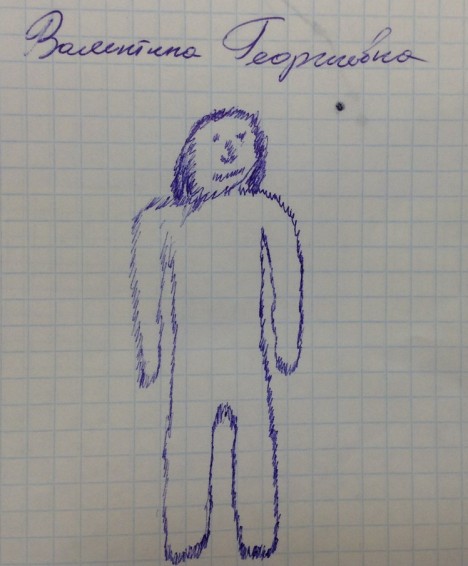 Валентина Георгиевна